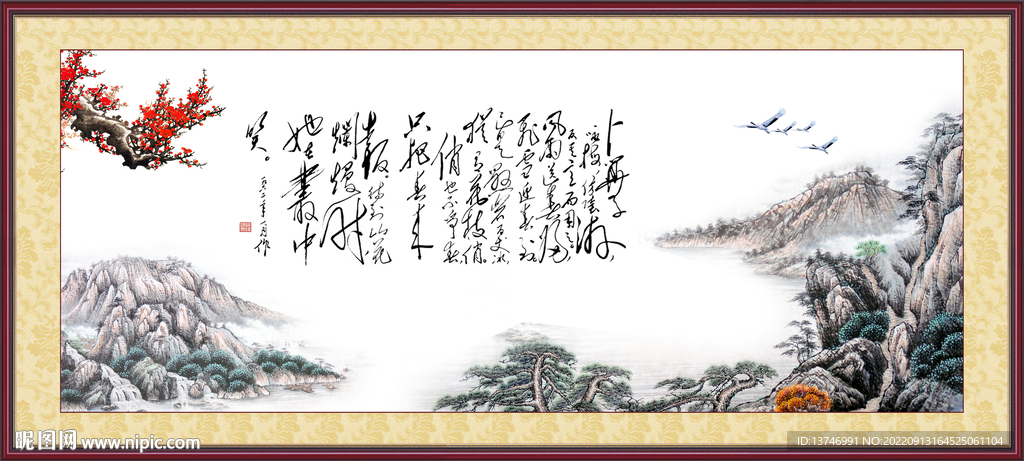 卜算子
咏梅
风雨送春归
飞雪迎春到
已是悬崖百丈冰
犹有花枝俏
俏也不争春
只把春来
报待到山花
烂熳时
她在叢中
笑。
昵图网 www.nipic.com
ID:13746991 NO:20220913164525061104